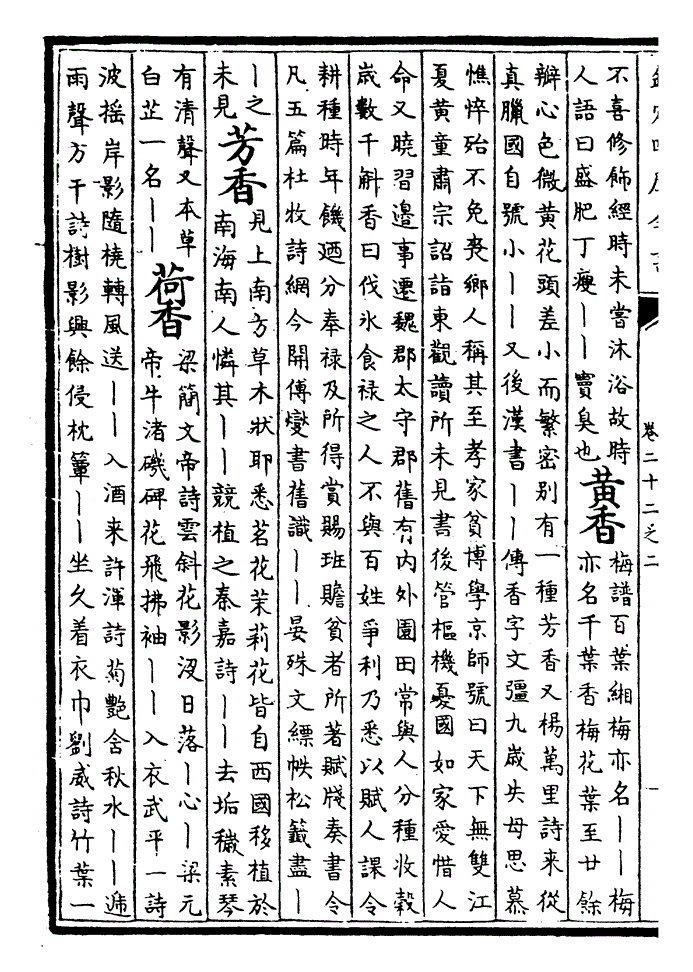 欽定四庫全書
卷二十二之二
不喜修飾經時未嘗沐浴故時
人語曰盛肥丁瘦——竇臭也
黄香
梅譜百葉緗梅亦名——梅
亦名千葉香梅花葉至廿餘
瓣心色微黄花頭差小而繁密别有一種芳香又楊萬里詩来從
真臘國自號小——又後漢書——傳香字文彊九歲失母思慕
憔悴殆不免喪鄉人稱其至孝家貧博學京師號曰天下無雙江
夏黄童肅宗詔詣東觀讀所未見書後管樞機憂國如家愛惜人
命又曉習邊事遷魏郡太守郡舊有内外園田常與人分種收榖
歲數千斛香曰伐氷食禄之人不與百姓爭利乃悉以賦人課令
耕種時年饑廼分奉禄及所得賞賜班贍貧者所著賦牋奏書令
凡五篇杜牧詩網今開傅燮書舊識——晏殊文縹帙松籤盡—
—之
未見
芳香
見上南方草木狀耶悉茗花茉莉花皆自西國移植於
南海南人憐其——競植之秦嘉詩——去垢穢素琴
有清聲又本草
白芷一名——
荷香
梁簡文帝詩雲斜花影沒日落—心—梁元
帝牛渚磯碑花飛拂袖——入衣武平一詩
波摇岸影隨橈轉風送——入酒来許渾詩菊艷含秋水——遞
雨聲方干詩樹影興餘侵枕簟——坐久着衣巾劉威詩竹葉一